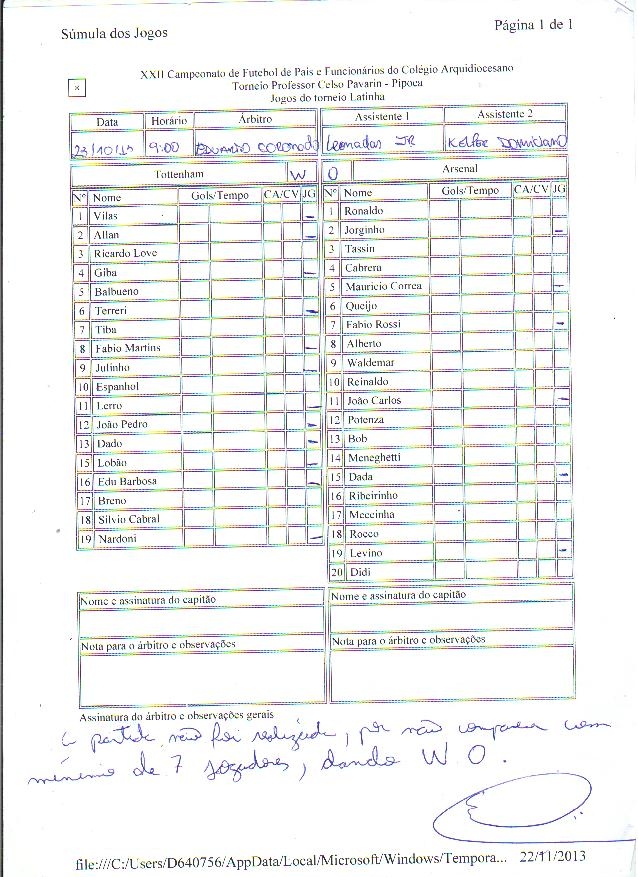 Súmula dos Jogos
Página 1 de 1
XXII Campeonato de Futebol de Pais e Funcionários do Colégio Arquidiocesano
Torneio Professor Celso Pavarin - Pipoca
Jogos do torneio Latinha
x
Data Horário Árbitro Assistente 1 Assistente 2
23/10/13 9:00 EDUARDO CORONADO Leonadas JR
Tottenham W O Arsenal
Nº Nome Gols/Tempo CA/CV JG Nº Nome Gols/Tempo CA/CV JG
1 Vilas - 1 Ronaldo
2 Allan - 2 Jorginho -
3 Ricardo Love 3 Tassin
4 Giba - 4 Cabrera
5 Balbueno 5 Mauricio Correa -
6 Terreri - 6 Queijo
7 Tiba 7 Fabio Rossi -
8 Fabio Martins - 8 Alberto
9 Julinho - 9 Waldemar
10 Espanhol 10 Reinaldo
11 Lerro - 11 João Carlos -
12 João Pedro - 12 Potenza
13 Dado - 13 Bob
15 Lobão - 14 Meneghetti
16 Edu Barbosa - 15 Dada -
17 Breno 16 Ribeirinho
18 Silvio Cabral 17 Mecinha
19 Nardoni - 18 Rocco
19 Levino -
20 Didi
Nome e assinatura do capitão Nome e assinatura do capitão
Nota para o árbitro e observações Nota para o árbitro e observações
Assinatura do árbitro e observações gerais
partida não foi realizada, por não comparecer com
mínimo de 7 jogadores, dando W O.
file:///C:/Users/D640756/AppData/Local/Microsoft/Windows/Tempora... 22/11/2013